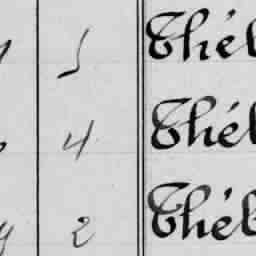 5 Thél
4 Thél
2 Thél